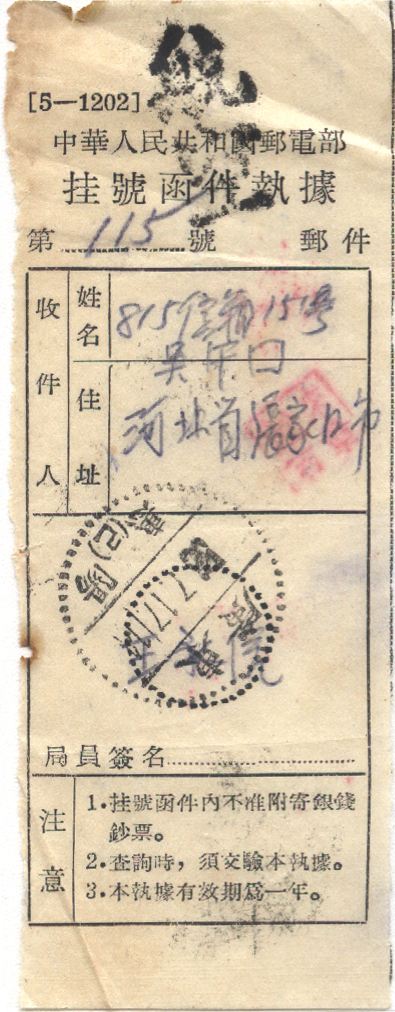 [5—1202]
中華人民共和國郵電部
挂號函件執據
第115號 郵件
收件人
姓名
815信箱15号
住址
河北省張家口市
局員簽名
注意
1.挂號函件內不准附寄銀錢
鈔票。
2.查詢時，須交驗本執據。
3.本執據有效期爲一年。